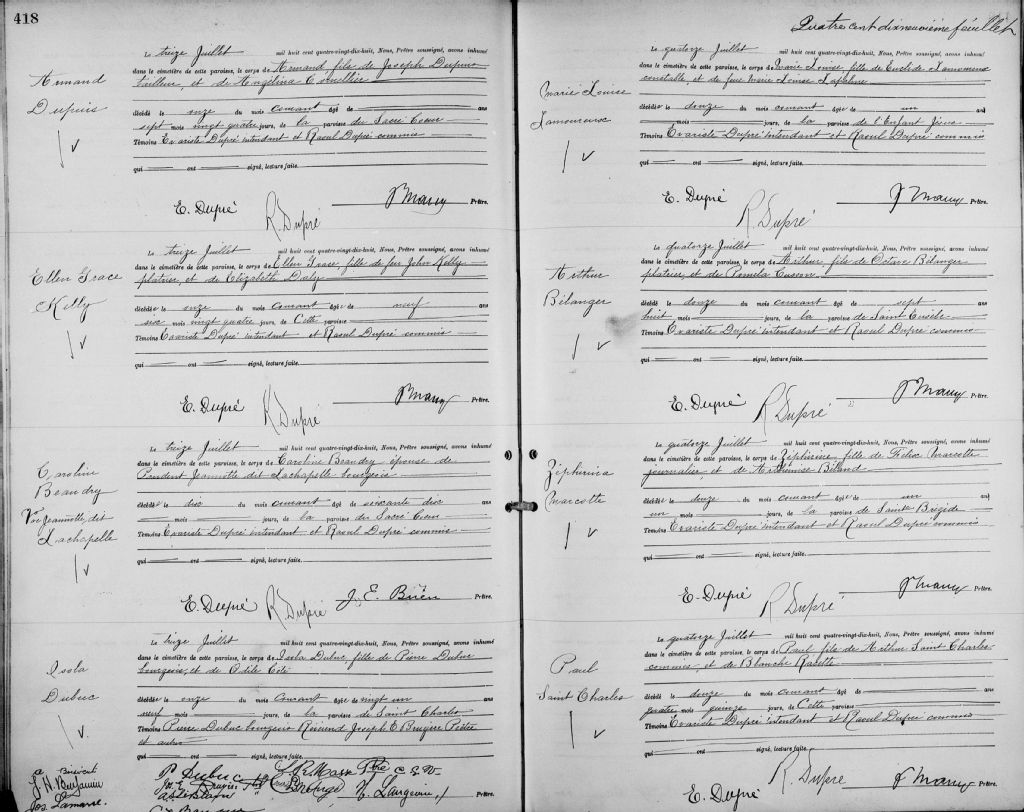 418
Armand
Dupuis
Le treize Juillet mil huit cent quatre-vingt-dix-huit, Nous, Prêtre soussigné, avons inhumé
dans le cimetière de cette paroisse, le corps de Armand, fils de Joseph Dupuis
tailleur, et de Angélina
décédé le onze du mois courant âgé de ans
sept mois vingt quatre jours, de la paroisse du Sacré Coeur
Témoins Evariste Dupré intendant et Raoul Dupré commis
qui ont signé, lecture faite.
E. Dupré R. Dupré Prêtre.
Ellen Grace
Kelly
Le treize Juillet mil huit cent quatre-vingt-dix-huit, Nous, Prêtre soussigné, avons inhumé
dans le cimetière de cette paroisse, le corps de Ellen Grace fille de feu John Kelly
platrier, et de Elizabeth Daly
décédée le onze du mois courant âgée de neuf
six mois vingt quatre jours, de Cette paroisse
Témoins Evariste Dupré intendant et Raoul Dupré commis
qui ont signé, lecture faite.
E. Dupré R. Dupré Prêtre.
Caroline
Beaudry
Jeannotte dit
Lachapelle
Le treize Juillet mil huit cent quatre-vingt-dix-huit, Nous, Prêtre soussigné, avons inhumé
dans le cimetière de cette paroisse, le corps de Caroline Beaudry épouse de
Prudent Jeannotte dit Lachapelle bourgeois
décédée le dix du mois courant âgée de soixante dix ans
mois jours, de la paroisse du Sacré Coeur
Témoins Evariste Dupré intendant et Raoul Dupré commis
qui ont signé, lecture faite.
E. Dupré R. Dupré J. E. Prêtre.
Isola
Dubuc
Le treize Juillet mil huit cent quatre-vingt-dix-huit, Nous, Prêtre soussigné, avons inhumé
dans le cimetière de cette paroisse, le corps de Isola Dubuc fille de Pierre Dubuc
bourgeois, et de Odile Côté
décédée le onze du mois Courant âgée de vingt un ans
neuf mois jours, de la paroisse de Saint Charles
Témoins Pierre Dubuc bourgeois Révérend Joseph E Prêtre
et autres
qui ont signé, lecture faite.
P. Dubuc
J. H. Benjamin
Jos. Lamarre
Quatre cent dixneuvième feuillet
Marie Louise
Lamoureux
Le quatorze Juillet mil huit cent quatre-vingt-dix-huit, Nous, Prêtre soussigné, avons inhumé
dans le cimetière de cette paroisse, le corps de Marie Louise, fille de Euclide Lamoureux
constable, et de feue Marie Louise
décédée le douze du mois courant âgée de un an
mois jours, de la paroisse de l'Enfant Jésus
Témoins Evariste Dupré intendant et Raoul Dupré commis
qui ont signé, lecture faite.
E. Dupré R. Dupré Prêtre.
Arthur
Bélanger
Le quatorze Juillet mil huit cent quatre-vingt-dix-huit, Nous, Prêtre soussigné, avons inhumé
dans le cimetière de cette paroisse, le corps de Arthur, fils de Octave Bélanger
platrier, et de Pomela Cusson
décédé le douze du mois courant âgé de sept
huit mois jours, de la paroisse de Saint Eusèbe
Témoins Evariste Dupré intendant et Raoul Dupré commis
qui ont signé, lecture faite.
E. Dupré R. Dupré Prêtre.
Zéphirina
Marcotte
Le quatorze Juillet mil huit cent quatre-vingt-dix-huit, Nous, Prêtre soussigné, avons inhumé
dans le cimetière de cette paroisse, le corps de Zéphirine, fille de Félix Marcotte
journalier, et de Arthémise Biland
décédée le douze du mois courant âgée de un an
un mois jours, de la paroisse de Sainte Brigide
Témoins Evariste Dupré intendant et Raoul Dupré commis
qui ont signé, lecture faite.
E. Dupré R. Dupré Prêtre.
Paul
Saint Charles
Le quatorze Juillet mil huit cent quatre-vingt-dix-huit, Nous, Prêtre soussigné, avons inhumé
dans le cimetière de cette paroisse, le corps de Paul fils de Arthur Saint Charles
commis, et de Blanche
décédé le douze du mois courant âgé de
quatre mois quinze jours, de Cette paroisse
Témoins Evariste Dupré intendant et Raoul Dupré commis
qui ont signé, lecture faite.
E. Dupré R. Dupré Prêtre.